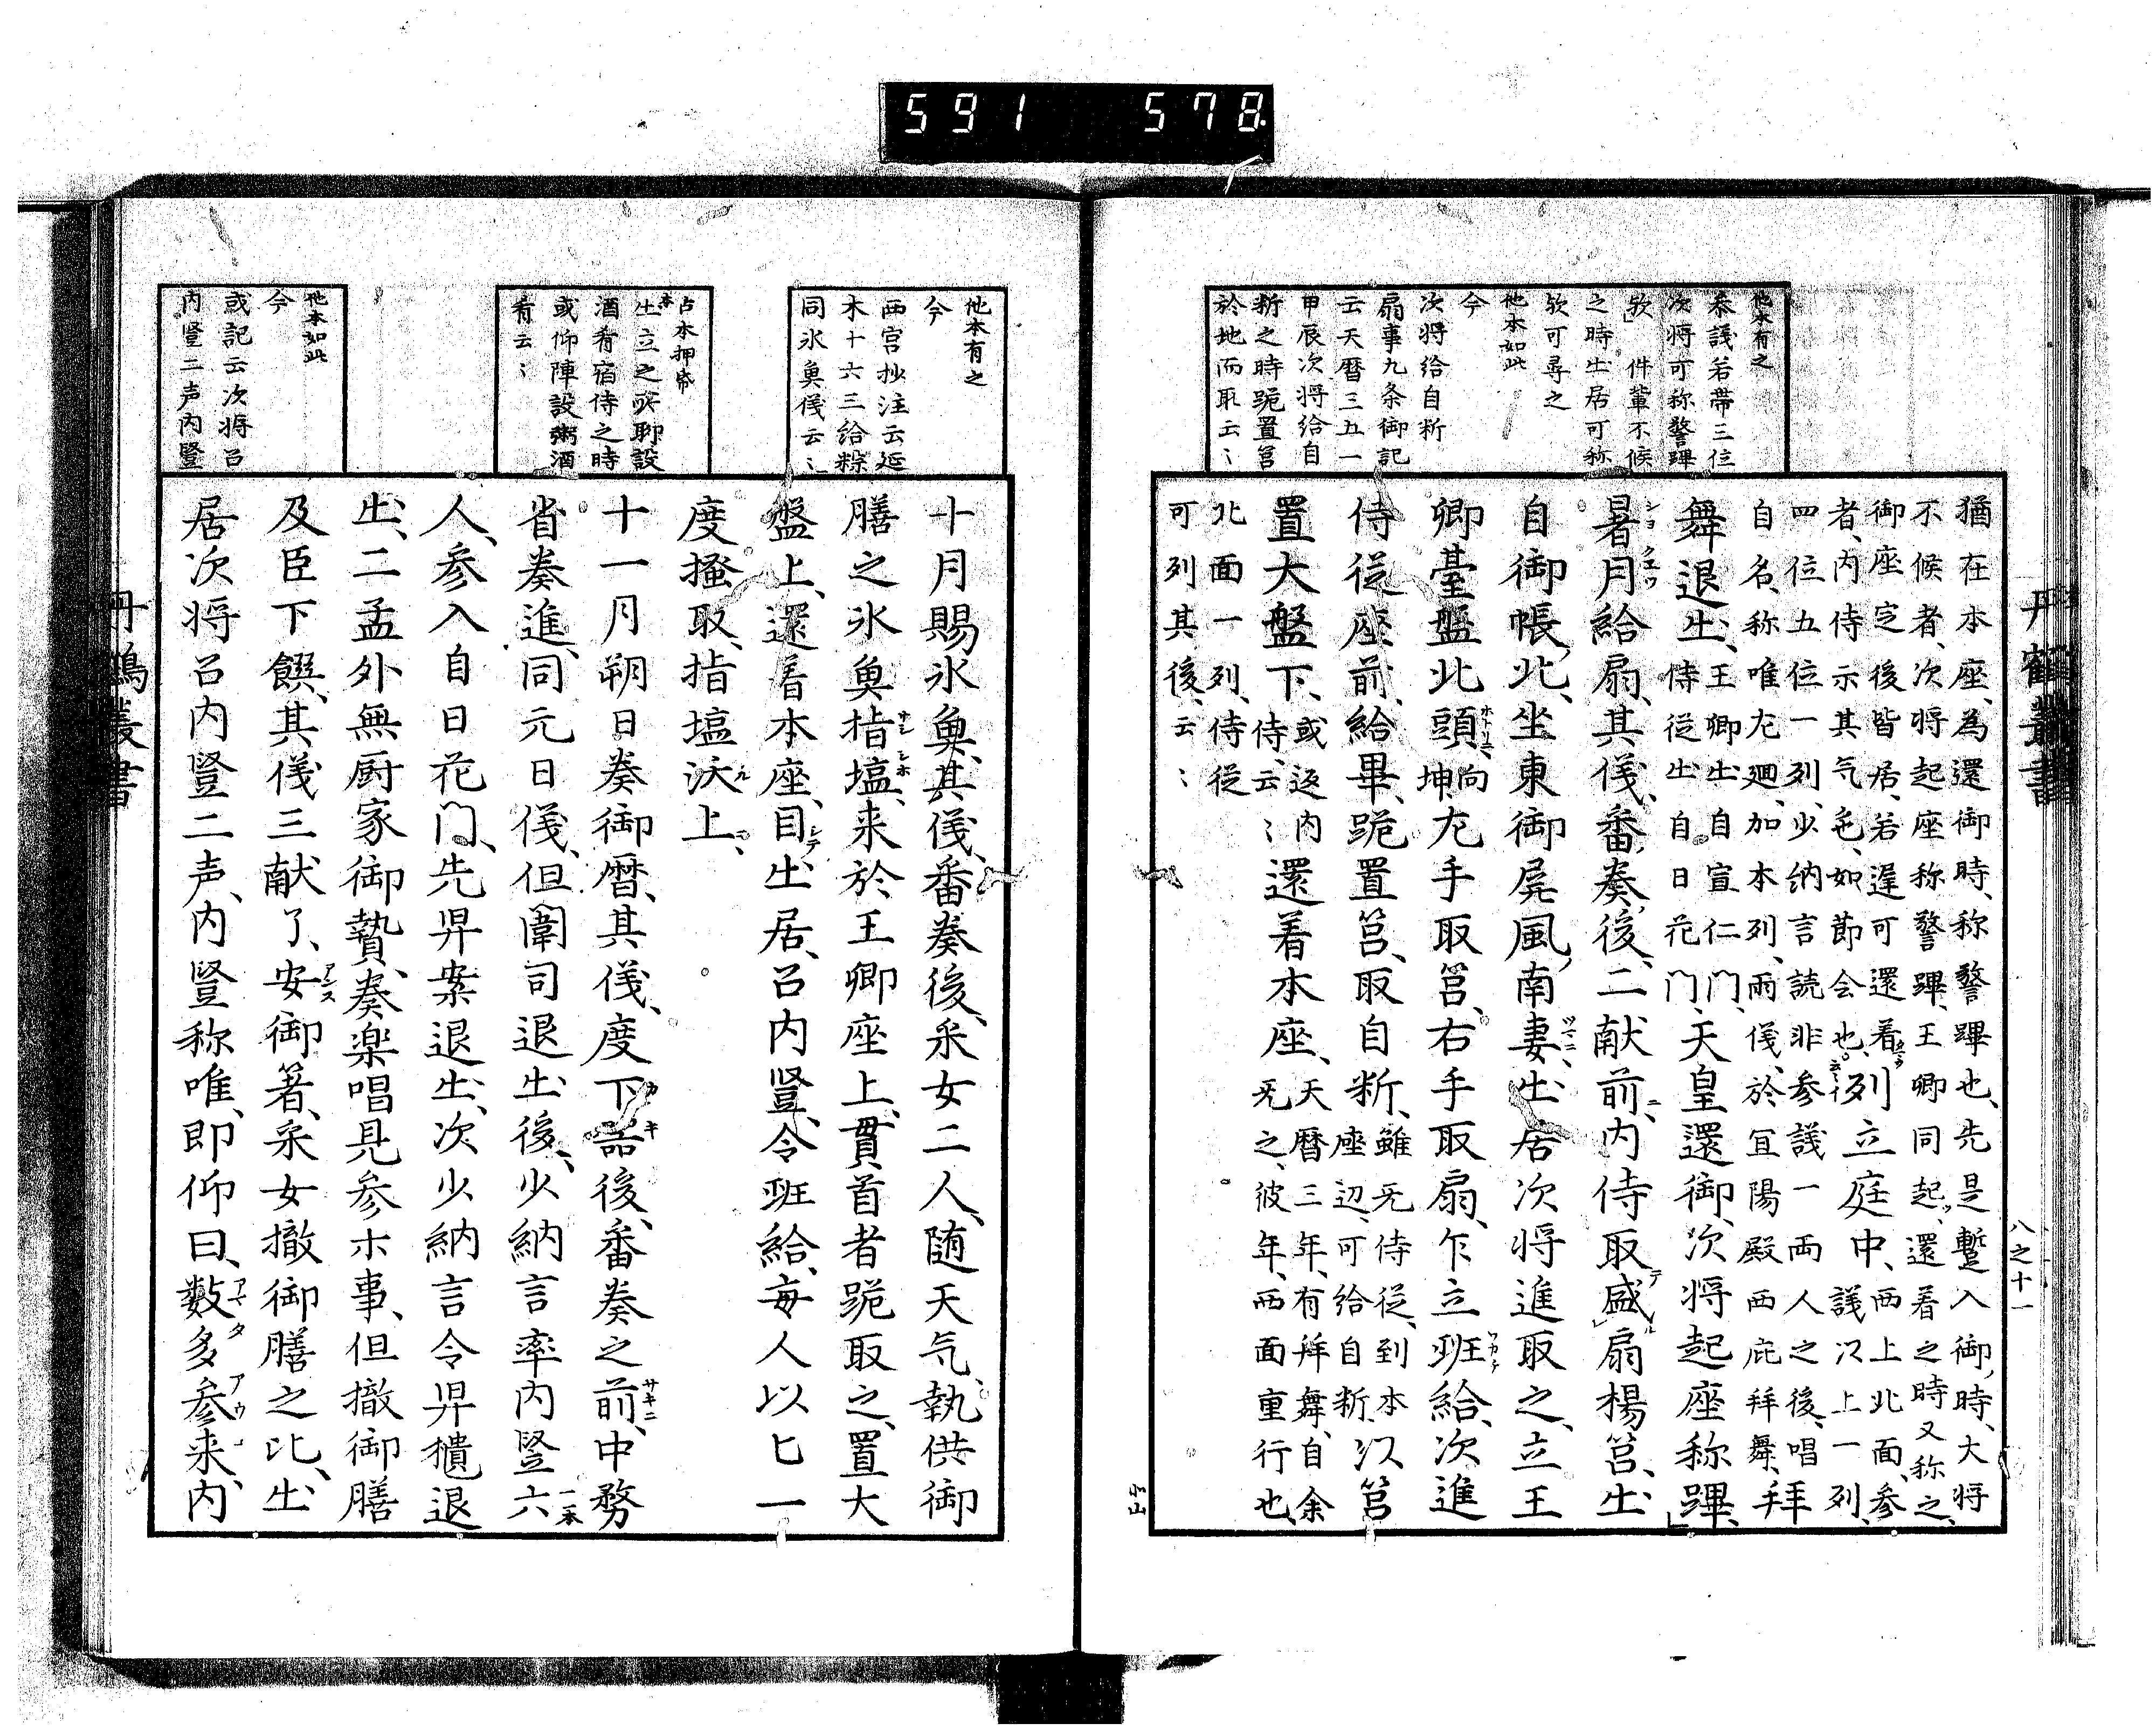 591 578
他本有之
参議若帯三位
次将可称警蹕
欤」件輩不候
之時出居可称
欤可尋之
他本如此
今
次将給自䉼
扇事九条御記
云天暦三五一
甲辰次将給自
䉼之時跪置筥
於地而取云〻
猶在本座、為還御時、称警蹕也、先是蹔入御、時、大将
不候者、次将起座称警蹕、王卿同起、還着之時又称之、
御座定後皆居、若遅可還着云〻列立庭中、西上北面、参
者、内侍示其气色、如節会也、議以上一列、
四位五位一列、少納言読非参議一両人之後、唱
自名、称唯左廻、加本列、雨儀、於宜陽殿西庇拜舞、拜
舞退出、王卿出自宣仁门、天皇還御、次将起座称蹕、
侍従出自日花门、
暑月給扇、其儀、番奏後、二献前、内侍取盛扇楊筥、出
自御帳北、坐東御屏風南妻、出居次将進取之、立王
卿臺盤北頭、向坤、左手取筥、右手取扇、乍立班給、次進
侍従座前、給畢、跪置筥、取自䉼、雖无侍従、到本座辺、可給自䉼、以筥
置大盤下、或返内侍、云〻還着本座、天暦三年、有拜舞、自余无之、彼年、西面重行也、
北面一列、侍従
可列其後、云〻
丹鶴叢書
八之十一
他本有之
今
西宮抄注云延
木十六三給粽
同氷魚儀云〻」
占本押帋
出立之所聊設
酒肴宿侍之時
或仰陣設粥酒
肴云〻
他本如此
今
或記云次将召
内豎二声内豎
十月賜氷魚、其儀、番奏後、采女二人、随天气、執供御
膳之氷魚指塩、来於王卿座上、貫首者跪取之、置大
盤上、還着本座、目出居、召内豎、令班給、毎人以匕一
度搔取、指塩沃上、
十一月朔日奏御暦、其儀、度下器後、番奏之前、中務
省奏進、同元日儀、但闈司退出後、少納言率内豎六
人、参入自日花门、先舁案退出、次少納言令舁櫃退
出、二孟外無厨家御贄、奏楽唱見参木事、但撤御膳
及臣下饌、其儀三献了、安御箸、采女撤御膳之比、出
居次将召内豎二声、内豎称唯、即仰曰、数多参来、内
丹鶴叢書